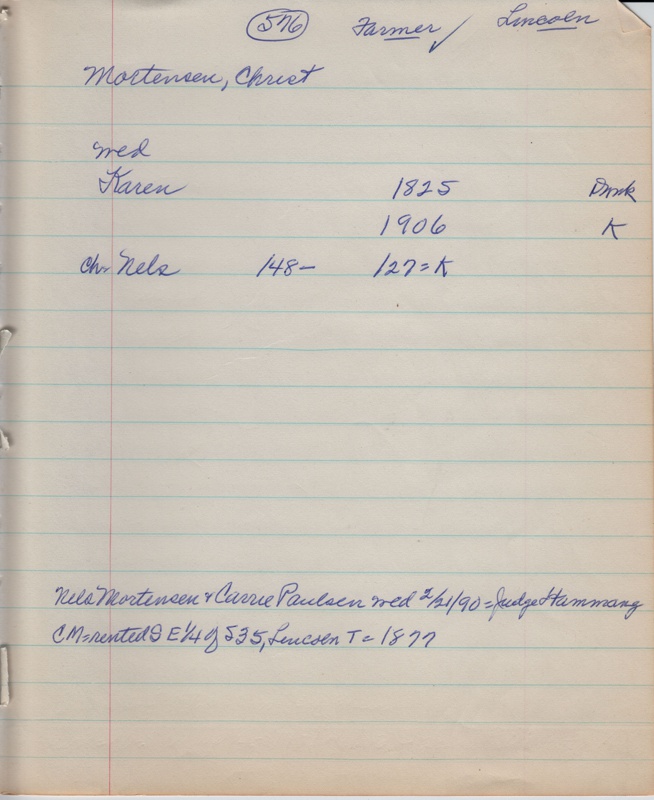 576 Farmer ✓ Lincoln
Mortensen, Christ
wed
Karen 1825 Dmk
1906 K
ch- Nels 148- 127=K
Nels Mortensen & Carrie Paulsen wed 2/21/90=Judge Hammang
CM=rented S E 1/4 of S35, Lincoln T= 1877